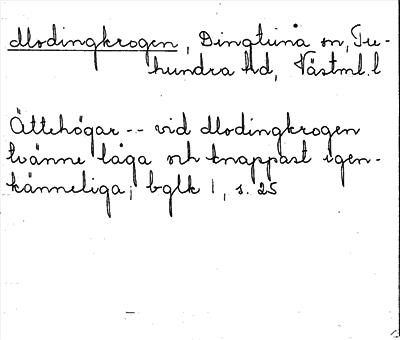 Modingkrogen, Dingtuna sn, Tu-
hundra hd, Västml. l
Ättehögar -- vid Modingkrogen
tvänne låga och knappast igen-
känneliga; bglk 1, s. 25